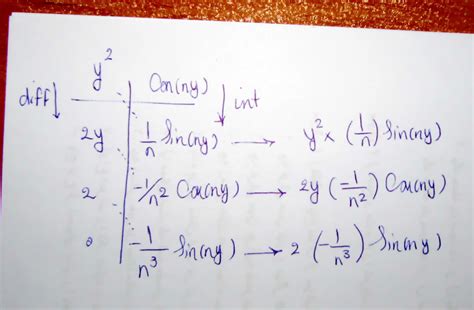 y² Cos(ny)
diff↓ ↓ int
2y 1/n Sin(ny) → y² × (1/n) Sin(ny)
2 -1/n² Cos(ny) → 2y (-1/n²) Cos(ny)
0 -1/n³ Sin(ny) → 2 (-1/n³) Sin(ny)